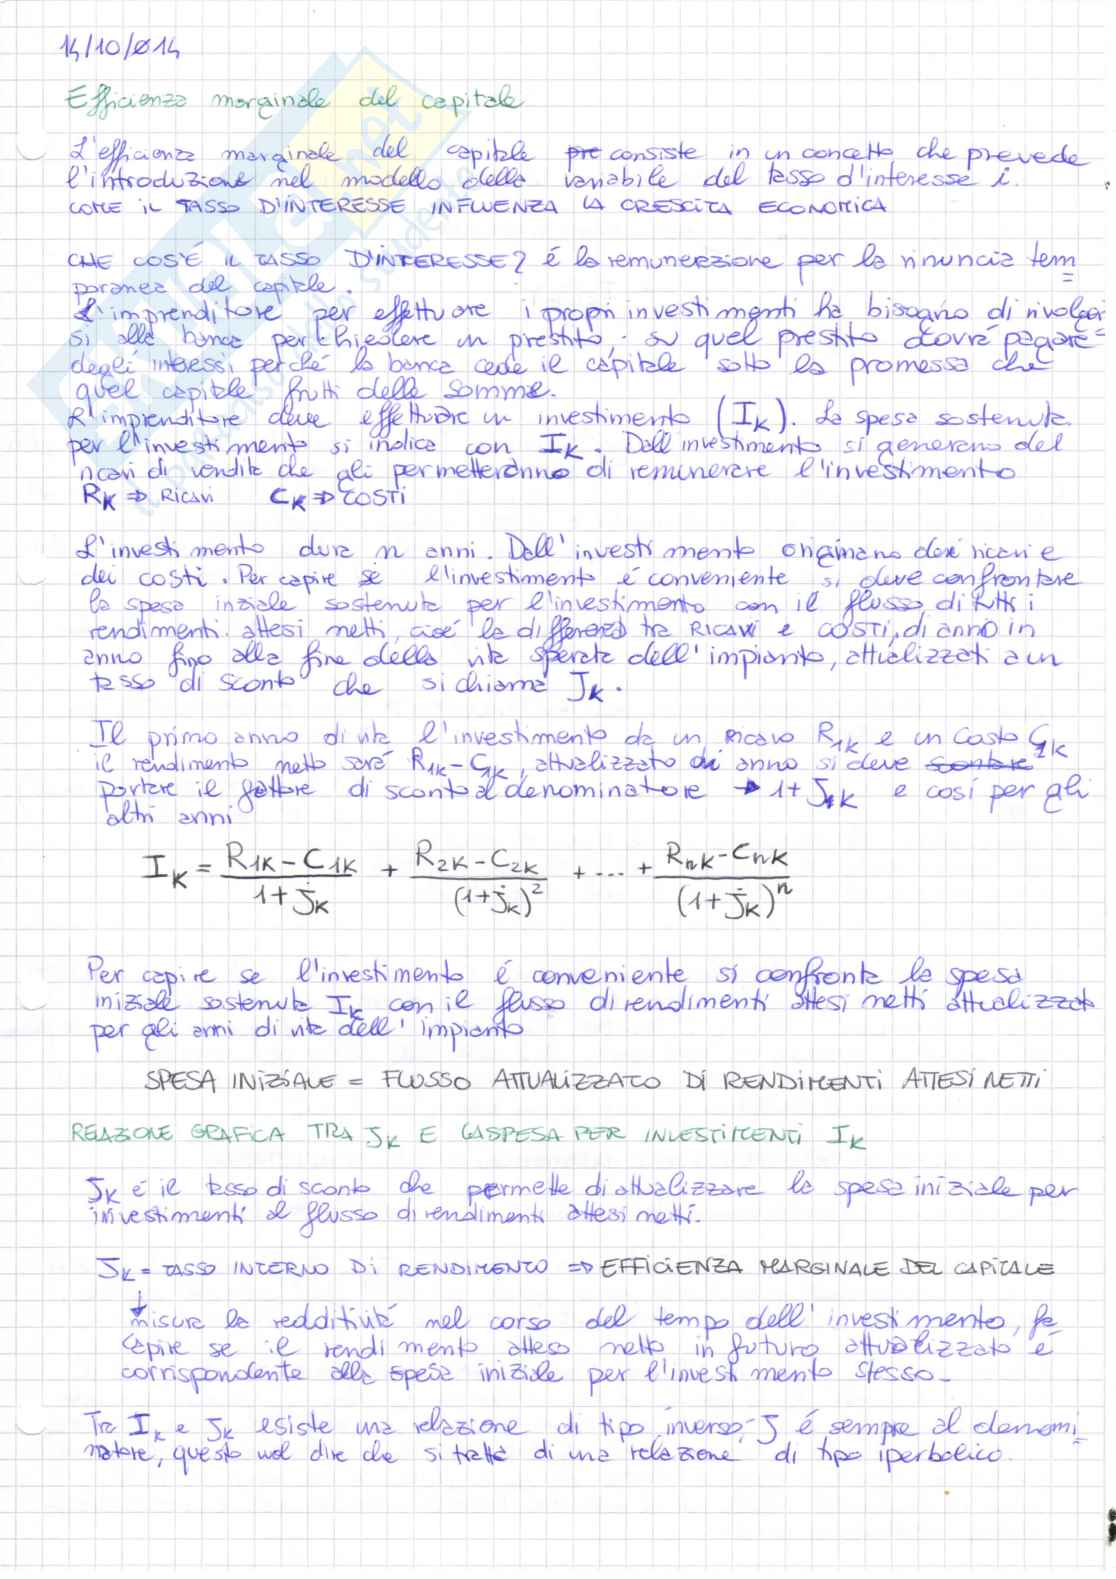 14/10/014
Efficienza marginale del capitale
L'efficienza marginale del capitale pre consiste in un concetto che prevede
l'introduzione nel modello della variabile del tasso d'interesse i.
COME IL TASSO D'INTERESSE INFLUENZA LA CRESCITA ECONOMICA
CHE COS'É IL TASSO D'INTERESSE? é la remunerazione per la rinuncia tem
poranea del capitale.
L'imprenditore per effettuare i propri investimenti ha bisogno di rivolger
si alla banca per chiedere un prestito, su quel prestito dovrá pagare
degli interessi perché la banca cede il capitale sotto la promessa che
quel capitale frutti delle somme.
L'imprenditore deve effettuare un investimento (IK). La spesa sostenuta
per l'investimento si indica con IK. Dall'investimento si generano dei
ricavi di vendita che gli permetteranno di remunerare l'investimento
RK ⇒ Ricavi CK ⇒ COSTI
L'investimento dura n anni. Dall'investimento originano dei ricavi e
dei costi. Per capire se l'investimento é conveniente si deve confrontare
la spesa inziale sostenuta per l'investimento con il flusso di tutti i
rendimenti attesi netti, cioé la differenza tra RICAVI e COSTI, di anno in
anno fino alla fine della vita sperata dell'impianto, attualizzati a un
tasso di sconto che si chiama JK.
Il primo anno di vita l'investimento da un Ricavo R1K e un Costo C1K
il rendimento netto sará R1K-C1K, attualizzato di anno si deve scontare
portare il fattore di sconto al denominatore → 1+J1K e cosí per gli
altri anni
IK = R1K-C1K/1+jK + R2K-C2K/(1+jK)² + ... + RnK-CnK/(1+jK)ⁿ
Per capire se l'investimento é conveniente si confronta la spesa
iniziale sostenuta IK con il flusso di rendimenti attesi netti attualizzati
per gli anni di vita dell'impianto
SPESA INIZIALE = FLUSSO ATTUALIZZATO DI RENDIMENTI ATTESI NETTI
RELAZIONE GRAFICA TRA JK E LA SPESA PER INVESTIMENTI IK
JK é il tasso di sconto che permette di attualizzare la spesa iniziale per
investimenti al flusso di rendimenti attesi netti.
JK = TASSO INTERNO DI RENDIMENTO ⇒ EFFICIENZA MARGINALE DEL CAPITALE
↓
misura la redditivitá nel corso del tempo dell'investimento, fa
capire se il rendimento atteso netto in futuro attualizzato é
corrispondente alla spesa iniziale per l'investimento stesso.
Tra IK e JK esiste una relazione di tipo inverso, J é sempre al denomi
natore, questo vuol dire che si tratta di una relazione di tipo iperbolico.